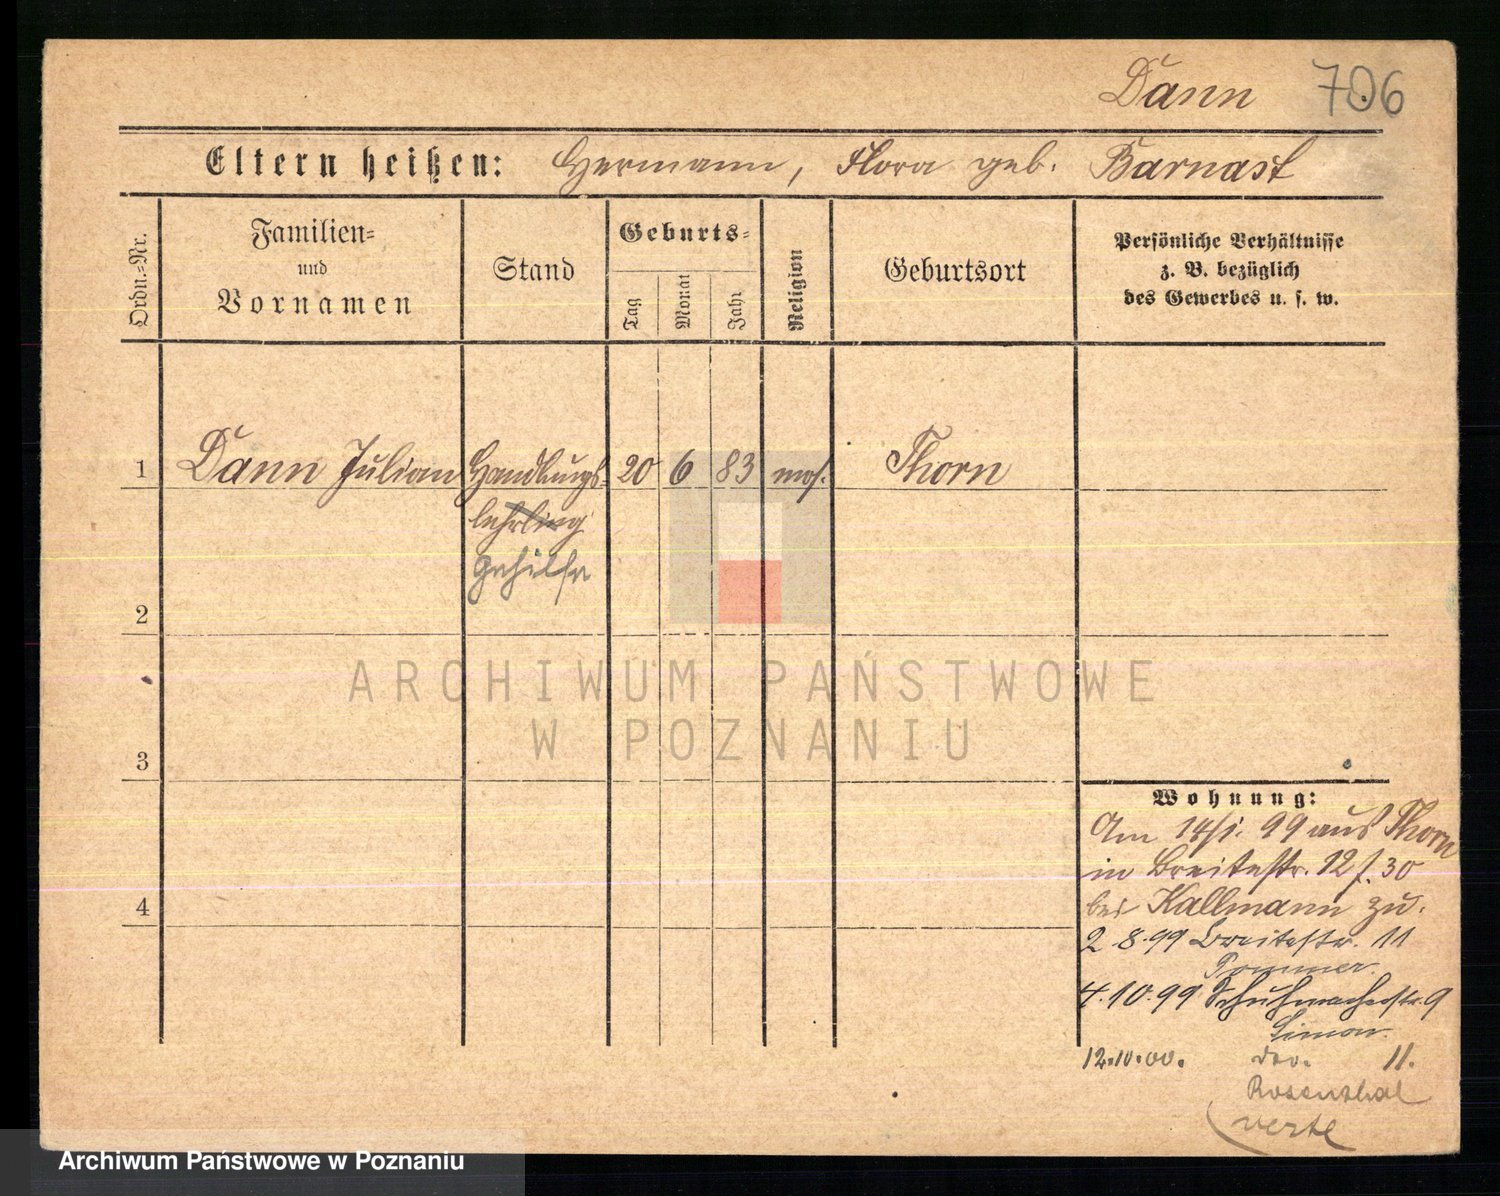 Dann 706
Eltern heißen: Hermann, Flora geb. Barnast
Ordn.=Nr.
Familien=
und
Vornamen
Stand
Geburts=
Tag
Monat
Jahr
Religion
Geburtsort
Persönliche Verhältnisse
z. B. bezüglich
des Gewerbes u. s. w.
1 Dann Julian Handlungs= 20 6 83 mos. Thorn
lehrling
gehilfe
2
3
4
Wohnung:
Am 14/1. 99 aus Thorn
in Breitestr. 12 f. 30
bei Kallmann zu.
2.8.99 Breitestr. 11
Pommer.
4.10.99 Schuhmacherstr. 9
Simon.
12.10.00. do. 11.
Rosenthal
verte
ARCHIWUM PAŃSTWOWE
W POZNANIU
Archiwum Państwowe w Poznaniu